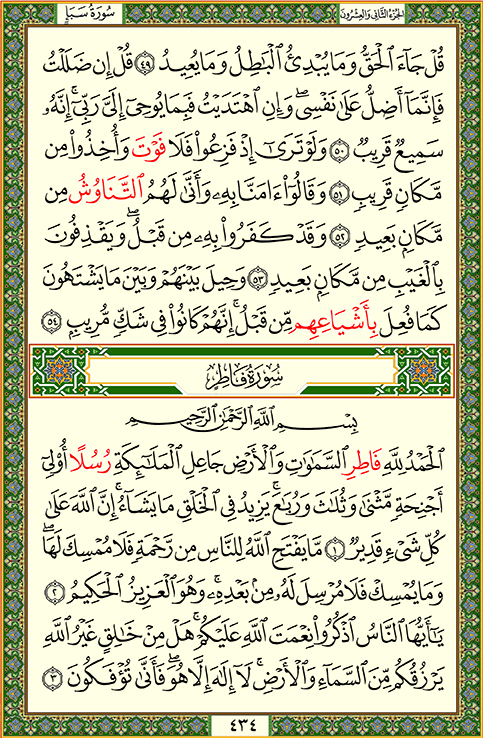 سُورَةُ سَبَإٍ
الجُزْءُ الثَّانِي وَالعِشْرُونَ
قُلْ جَآءَ ٱلْحَقُّ وَمَا يُبْدِئُ ٱلْبَٰطِلُ وَمَا يُعِيدُ ٤٩ قُلْ إِن ضَلَلْتُ
فَإِنَّمَآ أَضِلُّ عَلَىٰ نَفْسِى ۖ وَإِنِ ٱهْتَدَيْتُ فَبِمَا يُوحِىٓ إِلَىَّ رَبِّىٓ ۚ إِنَّهُۥ
سَمِيعٌ قَرِيبٌ ٥٠ وَلَوْ تَرَىٰٓ إِذْ فَزِعُوا۟ فَلَا فَوْتَ وَأُخِذُوا۟ مِن
مَّكَانٍ قَرِيبٍ ٥١ وَقَالُوٓا۟ ءَامَنَّا بِهِۦ وَأَنَّىٰ لَهُمُ ٱلتَّنَاوُشُ مِن
مَّكَانٍۭ بَعِيدٍ ٥٢ وَقَدْ كَفَرُوا۟ بِهِۦ مِن قَبْلُ ۖ وَيَقْذِفُونَ
بِٱلْغَيْبِ مِن مَّكَانٍۭ بَعِيدٍ ٥٣ وَحِيلَ بَيْنَهُمْ وَبَيْنَ مَا يَشْتَهُونَ
كَمَا فُعِلَ بِأَشْيَاعِهِم مِّن قَبْلُ ۚ إِنَّهُمْ كَانُوا۟ فِى شَكٍّ مُّرِيبٍۭ ٥٤
سُورَةُ فَاطِرٍ
بِسْمِ ٱللَّهِ ٱلرَّحْمَٰنِ ٱلرَّحِيمِ
ٱلْحَمْدُ لِلَّهِ فَاطِرِ ٱلسَّمَٰوَٰتِ وَٱلْأَرْضِ جَاعِلِ ٱلْمَلَٰٓئِكَةِ رُسُلًا أُو۟لِىٓ
أَجْنِحَةٍ مَّثْنَىٰ وَثُلَٰثَ وَرُبَٰعَ ۚ يَزِيدُ فِى ٱلْخَلْقِ مَا يَشَآءُ ۚ إِنَّ ٱللَّهَ عَلَىٰ
كُلِّ شَىْءٍ قَدِيرٌ ١ مَّا يَفْتَحِ ٱللَّهُ لِلنَّاسِ مِن رَّحْمَةٍ فَلَا مُمْسِكَ لَهَا ۖ
وَمَا يُمْسِكْ فَلَا مُرْسِلَ لَهُۥ مِنۢ بَعْدِهِۦ ۚ وَهُوَ ٱلْعَزِيزُ ٱلْحَكِيمُ ٢
يَٰٓأَيُّهَا ٱلنَّاسُ ٱذْكُرُوا۟ نِعْمَتَ ٱللَّهِ عَلَيْكُمْ ۚ هَلْ مِنْ خَٰلِقٍ غَيْرُ ٱللَّهِ
يَرْزُقُكُم مِّنَ ٱلسَّمَآءِ وَٱلْأَرْضِ ۚ لَآ إِلَٰهَ إِلَّا هُوَ ۖ فَأَنَّىٰ تُؤْفَكُونَ ٣
٤٣٤